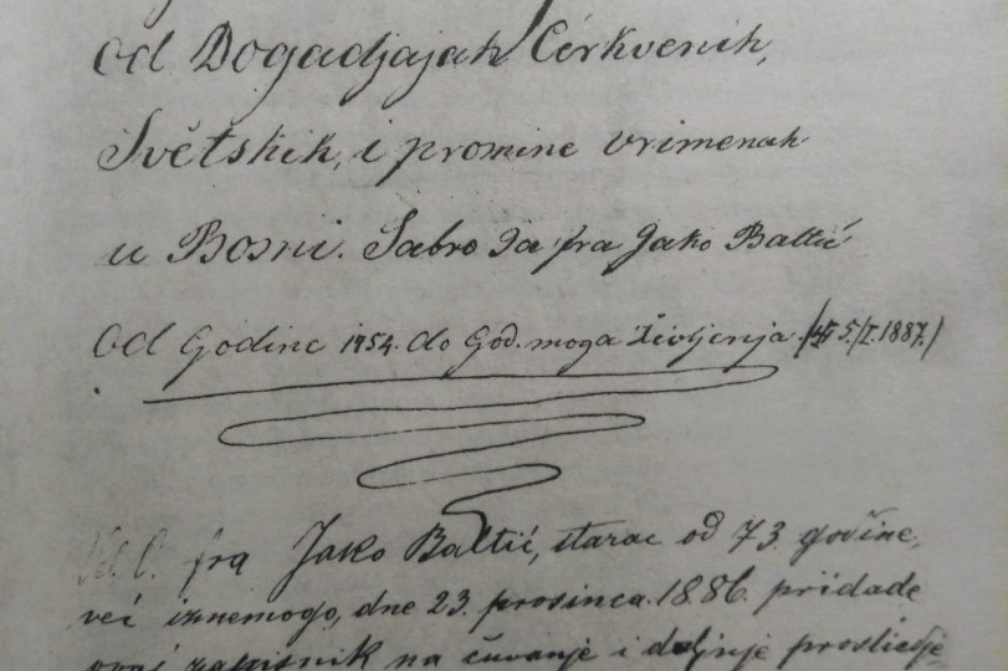 od Dogadjajah Cérkvenih,
Svĕtskih, i promine vrimenah
u Bosni. Sabro Ja fra Jako Baltić
Od Godine 1954. do God. moga življenja. 5./I. 1887.)
fra Jako Baltić, starac od 73 godine,
već iznemogo, dne 23. prosinca. 1886. pridade
ovaj zapisnik na čuvanje i daljnje prosliedje